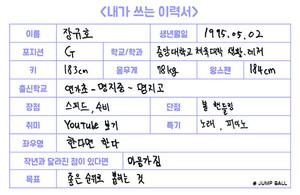 <내가 쓰는 이력서>
이름 장규호 생년월일 1995.05.02
포지션 G 학교/학과 중앙대학교 체육대학 생활.레저
키 183cm 몸무게 78kg 윙스팬 184cm
출신학교 연가초 - 명지중 - 명지고
장점 스피드, 수비 단점 볼 핸들링
취미 YouTube 보기 특기 노래, 피아노
좌우명 한다면 한다
작년과 달라진 점이 있다면 마음가짐
목표 좋은 순위로 뽑히는 것
# JUMP BALL